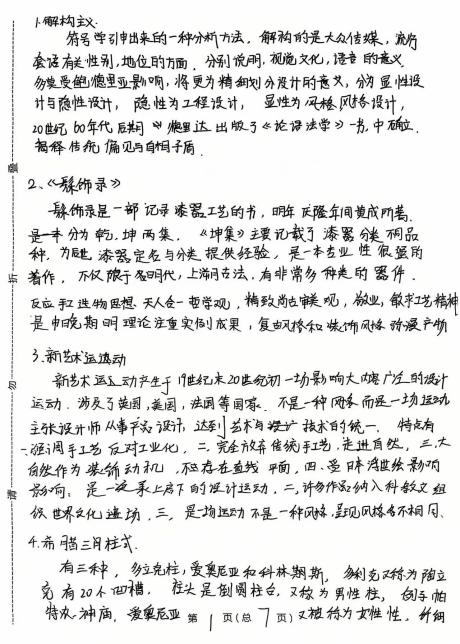 1.解构主义.
符号学引申出来的一种分析方法, 解构的是大众传媒, 流行
套语有关性别,地位的方面. 分别说明, 视觉文化, 语言的意义
多莫受鲍德里亚影响, 将更为精细划分设计的意义, 分为显性设
计与隐性设计, 隐性为工程设计, 显性为风格风格设计,
20世纪60年代后期 德里达出版了《论语法学》一书,中确立.
揭释传统偏见与自相矛盾.
2、《髹饰录》
髹饰录是一部记录漆器工艺的书, 明年庆隆年间黄成所著.
是一本分为乾,坤两集, 《坤集》主要记载了漆器分类 品
种, 为 漆器定名与分类提供经验, 是一本专业性很强的
著作, 不仅限于 明代, 上溯问古法, 有非常多种类的器件.
反应了造物思想 天人合一哲学观, 精致尚古审美观, 敬业, 敏求工艺精神
是中晚期明理论注重实例成果, 复古风格和装饰风格 产物
3.新艺术运动
新艺术运动产生于19世纪末20世纪初一场影响大 广泛的设计
运动. 涉及了英国,美国,法国等国家. 不是一种风格而是一场运动
主张设计师从事产品设计, 达到艺术与 技术的统一. 特点有
一.强调手工艺反对工业化, 二.完全放弃传统手工艺,走进自然, 三.大
自然作为装饰动机, 不存在直线平面, 四.受日本浮世绘影响
影响: 是一次承上启下的设计运动, 二,许多作品纳入科教文组
织世界文化遗场, 三. 是一场运动不是一种风格,呈现风格各不相同.
4.希腊三月柱式.
有三种, 多立克柱,爱奥尼亚和科林斯斯, 多利克又称为陶立
克有20个凹槽. 柱头是倒圆柱台, 又被为男性柱, 例与帕
特农神庙. 爱奥尼亚 又被称为女性性, 纤细
第1页(总7页)
叠
折
勿
请